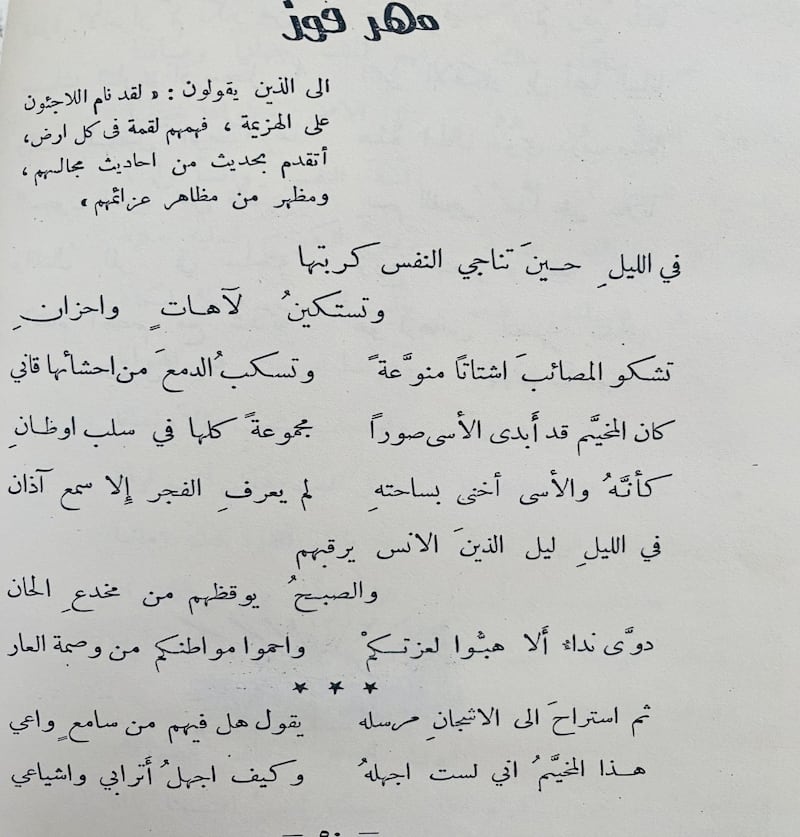 مهر فوز
الى الذين يقولون : « لقد نام اللاجئون
على الهزيمة ، فهمهم لقمة فى كل ارض،
أتقدم بحديث من احاديث مجالسهم ،
ومظهر من مظاهر عزائمهم »
في الليلِ حـينَ تناجي النفس كربتها
وتستكينُ لآهـاتٍ واحزانِ
تشكو المصائبَ اشتاتاً منوَّعةً وتسكبُ الدمعَ من احشائها قاني
كان المخيَّم قد أَبدى الأسى صوراً مجموعةً كلها في سلب اوطـانِ
كأنَّهُ والأسى أخنى بساحتهِ لم يعرفِ الفجر إِلا سمع آذان
في الليلِ ليل الذينَ الانس يرقبهم
والصبـحُ يوقظهم من مخدعِ الحان
دوَّى نداءٌ أَلا هبُّوا لعزتـكمْ واحموا مواطنكم من وصمة العار
★ ★ ★
ثم استراحَ الى الاشجانِ مرسله يقول هل فيهم من سامعٍ واعي
هـذا المخيَّمُ اني لست اجهلهُ وكيف اجهلُ أَترابي واشياعي
— ٥٠ —